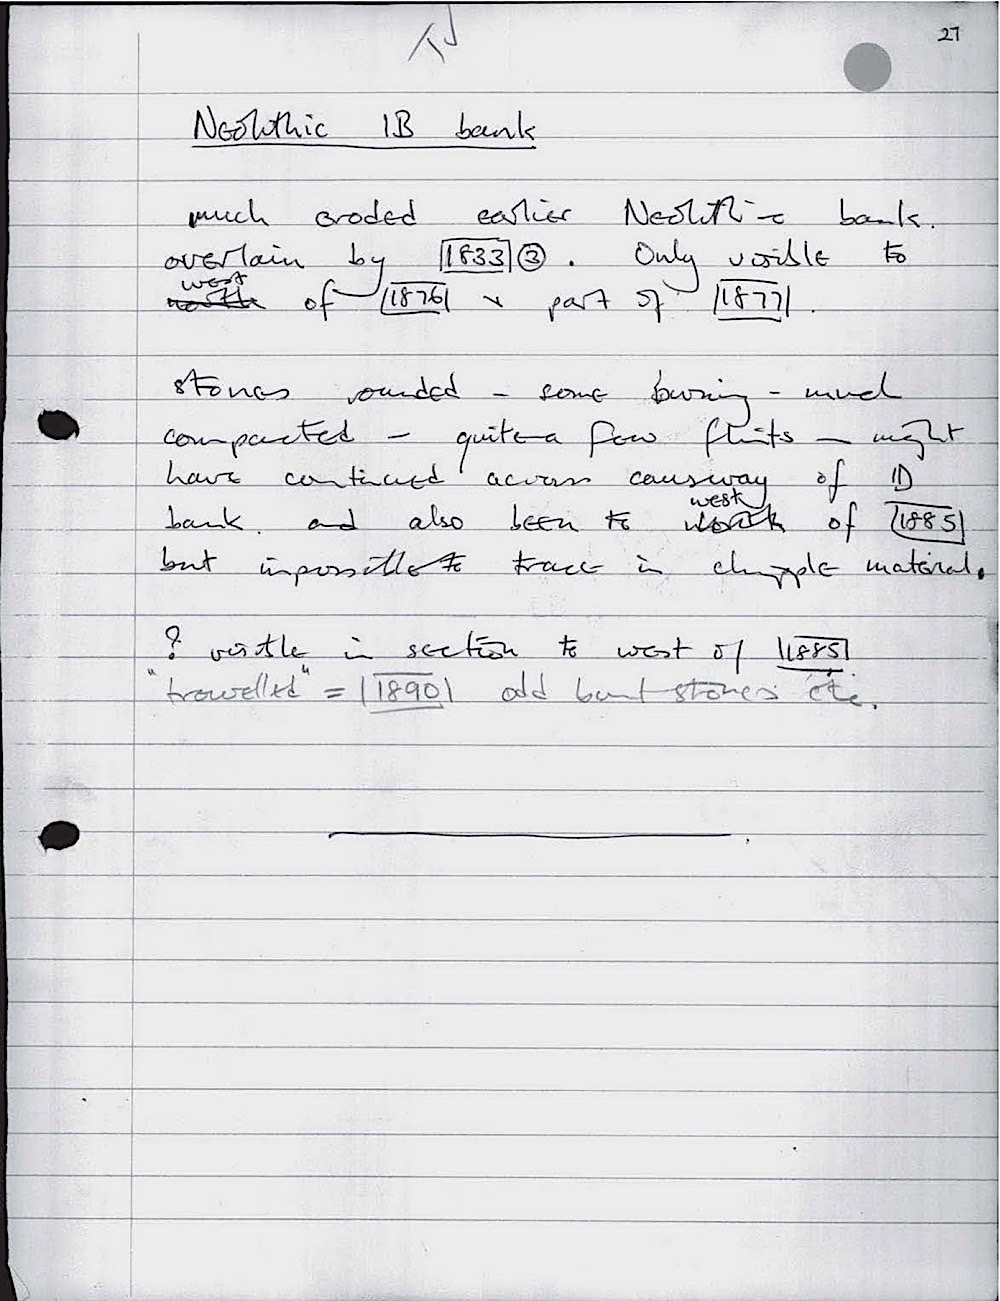 27
Neolithic IB bank
much eroded earlier Neolithic bank.
overlain by 1833 ③. Only visible to
west
north of 1876 & part of 1877.
stones rounded - some burning - much
compacted - quite a few flints - might
have continued across causeway of ID
west
bank. and also been to north of 1885
but impossible to trace in material.
? visible in section to west of 1885
"trowelled" = 1890 odd burnt stones etc.